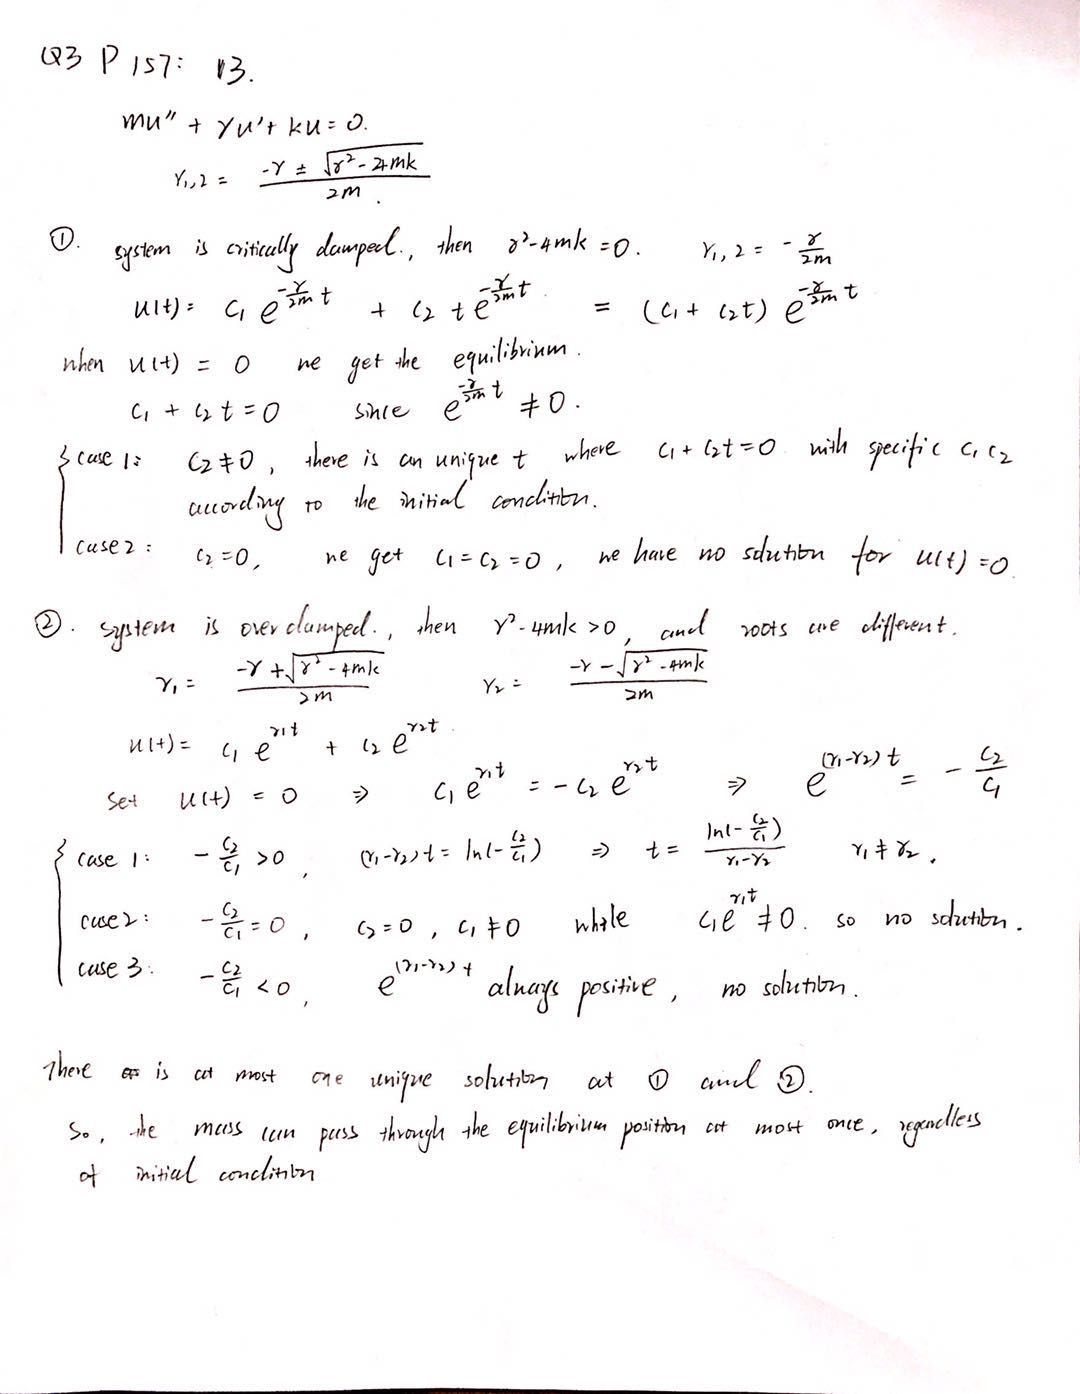 Q3 P157: 13.
mu" + γu' + ku = 0.
r₁,₂ = (-γ ± √(γ² - 4mk)) / 2m.
①. system is critically damped., then γ²-4mk = 0. r₁,₂ = -γ/2m
u(t) = c₁ e^(-γ/2m t) + c₂ t e^(-γ/2m t) = (c₁ + c₂t) e^(-γ/2m t)
when u(t) = 0 we get the equilibrium.
c₁ + c₂ t = 0 since e^(-γ/2m t) ≠ 0.
{ case 1: c₂ ≠ 0, there is an unique t where c₁ + c₂t = 0 with specific c₁ c₂
according to the initial condition.
case 2: c₂ = 0, we get c₁ = c₂ = 0, we have no solution for u(t) = 0.
②. system is over damped., then γ² - 4mk > 0, and roots are different.
r₁ = (-γ + √(γ² - 4mk)) / 2m r₂ = (-γ - √(γ² - 4mk)) / 2m
u(t) = c₁ e^(r₁t) + c₂ e^(r₂t).
Set u(t) = 0 ⇒ c₁ e^(r₁t) = -c₂ e^(r₂t) ⇒ e^((r₁-r₂)t) = -c₂/c₁
{ case 1: -c₂/c₁ > 0, (r₁-r₂)t = ln(-c₂/c₁) ⇒ t = ln(-c₂/c₁) / (r₁-r₂) r₁ ≠ r₂.
case 2: -c₂/c₁ = 0, c₂ = 0, c₁ ≠ 0 while c₁e^(r₁t) ≠ 0. so no solution.
case 3: -c₂/c₁ < 0, e^((r₁-r₂)t) always positive, no solution.
There is at most one unique solution at ① and ②.
So, the mass can pass through the equilibrium position at most once, regardless
of initial condition